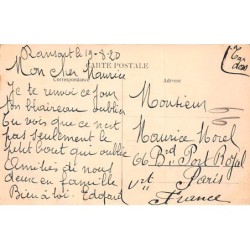 Ransart le 19-8-20
CARTE POSTALE
Correspondance
Adresse
Mon cher Maurice
Je te renvoie ce jour
ton blaireau oublié
Tu vois que ce n'est
pas seulement le
petit bout qui oublie
Amitiés de nous
deux en famille
Bien à toi. Edgard
Monsieur
Maurice Morel
66 Brd Port Royal
Paris
France